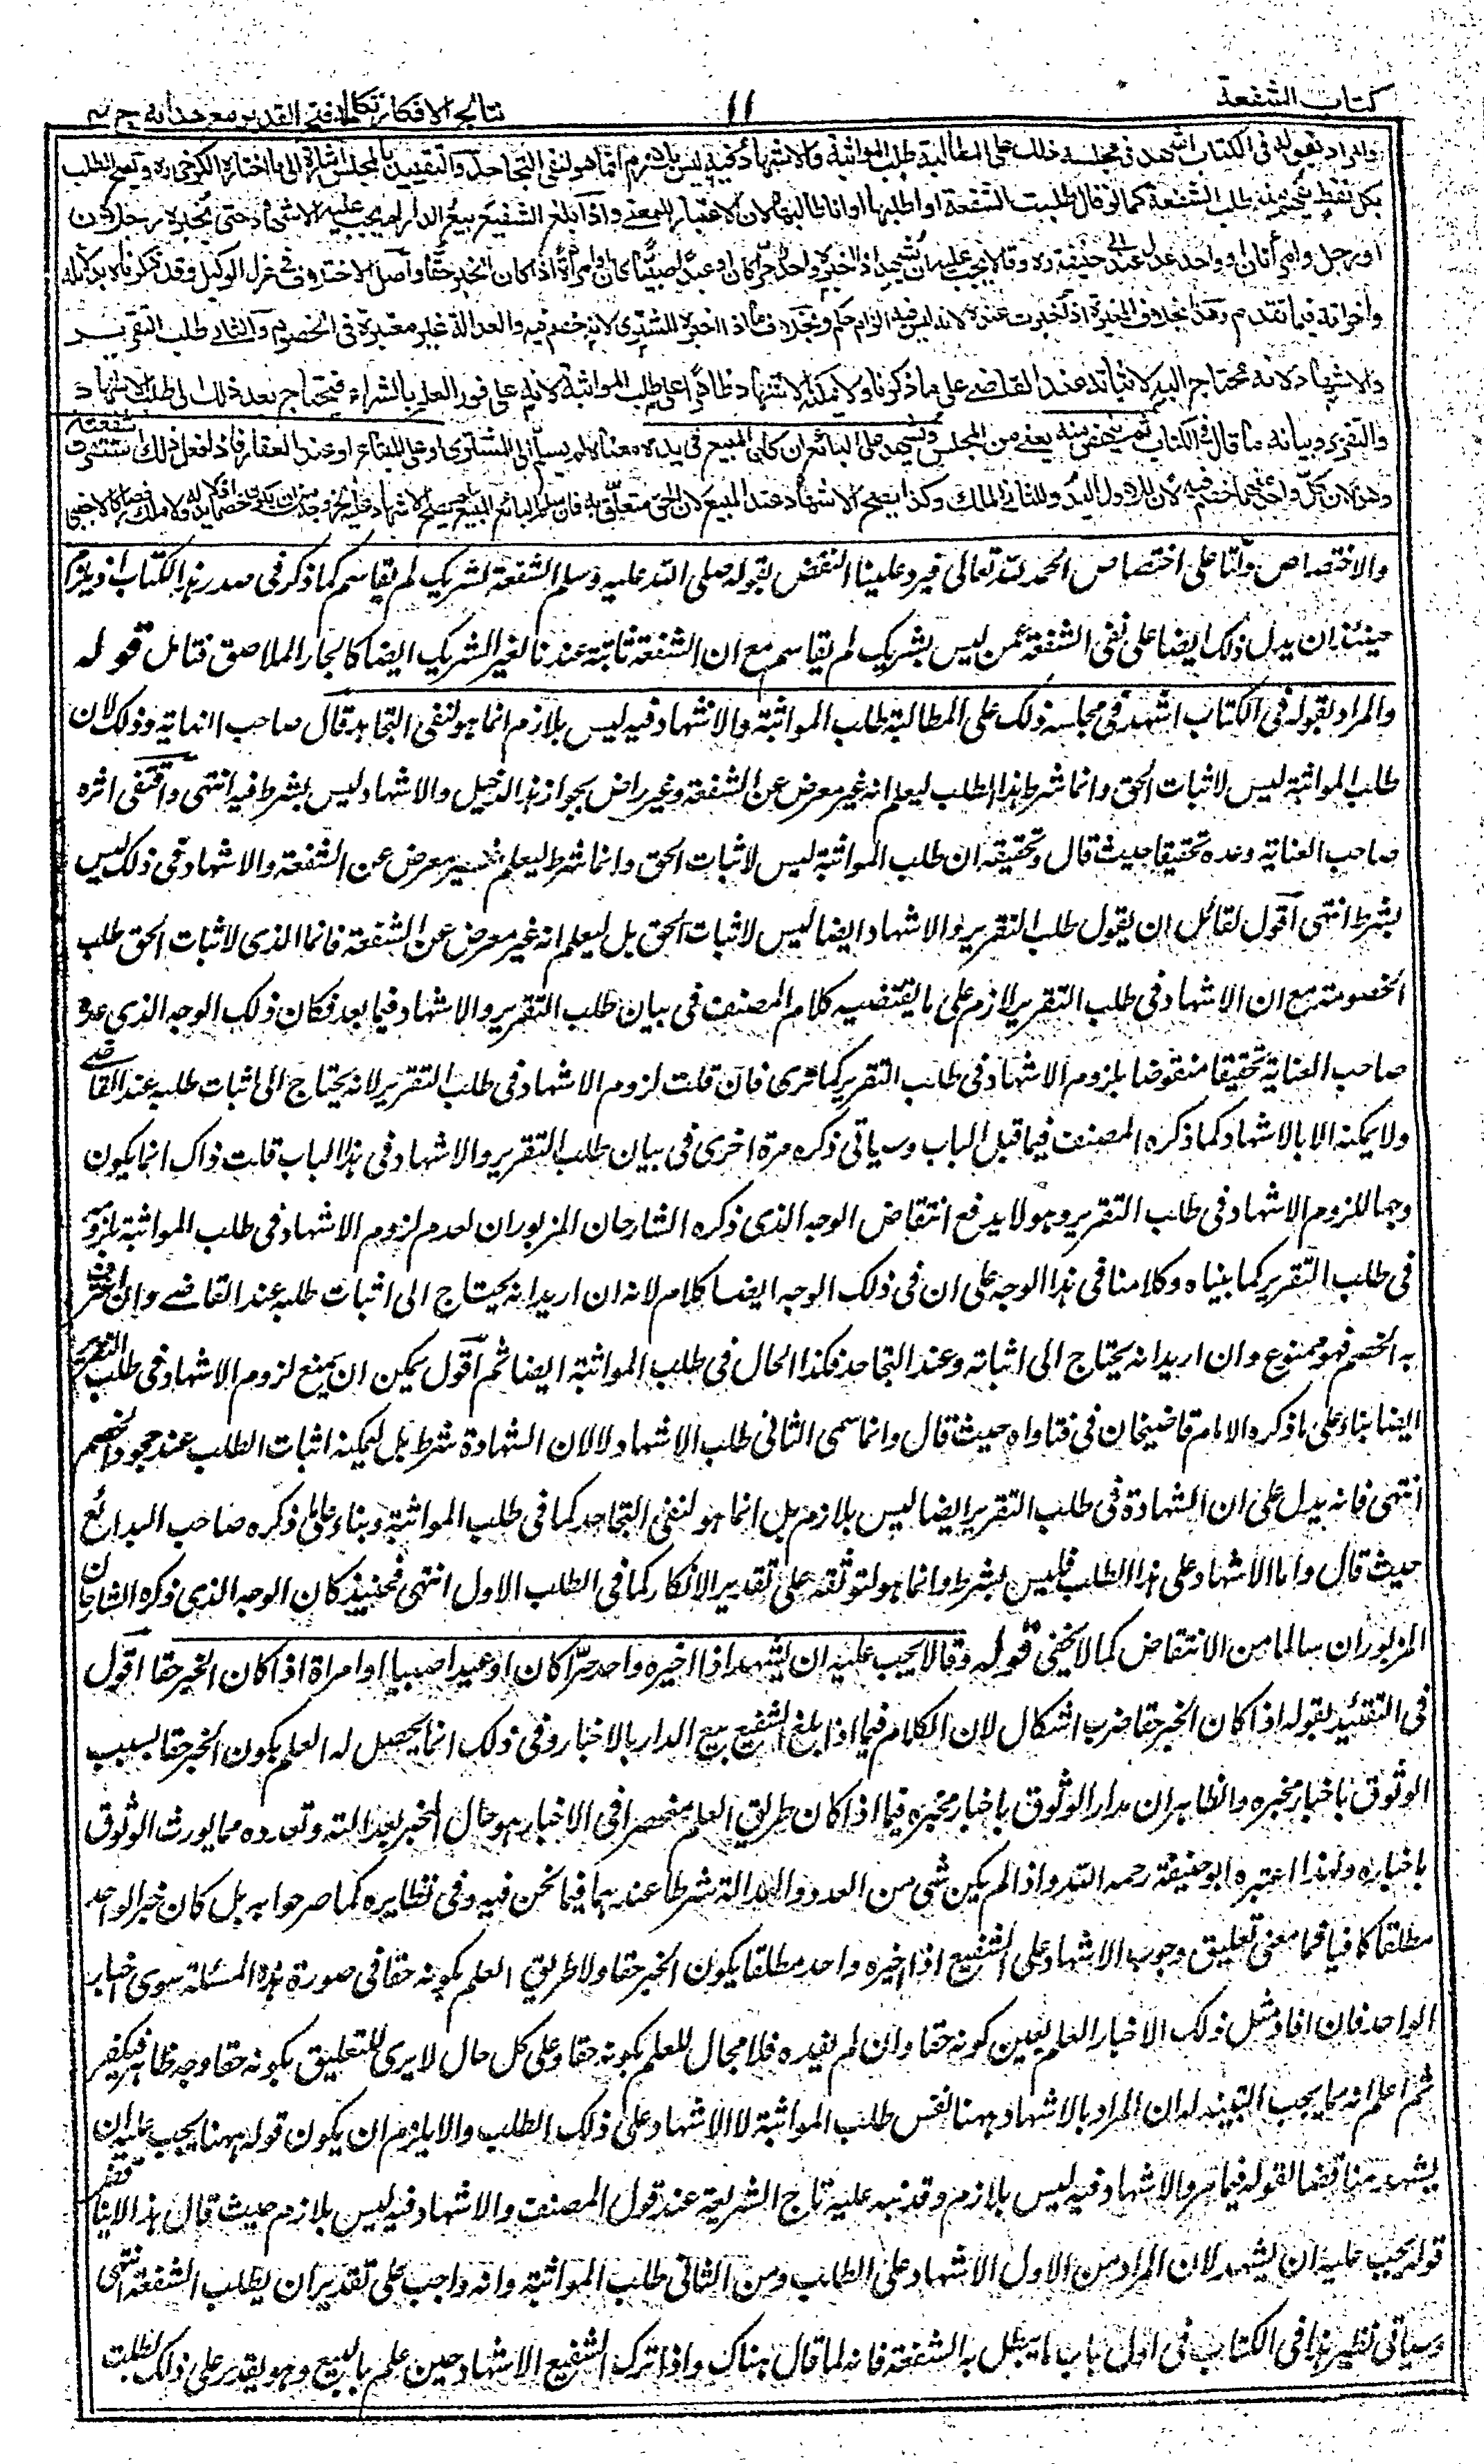 كتاب الشفعة
١١
نتائج الافكار تكملة فتح القدير مع هدايه ج
والمراد بقوله فى الكتاب اشهد فى مجلسه ذلك على المطالبة طلب المواثبة والاشهاد فيه ليس بلازم انما هو لنفى التجاحد والتقييد بالمجلس اشارة الى ما اختاره الكرخى ره ويصح الطلب
بكل لفظ يفهم منه طلب الشفعة كما لو قال طلبت الشفعة او اطلبها او انا طالبها لان الاعتبار للمعنى واذا بلغ الشفيع بيع الدار لم يجب عليه الاشهاد حتى يخبره رجلان
او رجل وامرأتان او واحد عدل عند ابى حنيفة ره وقالا يجب عليه ان يشهد اذا اخبره واحد حرّا كان او عبدًا صبيًا كان او امرأة اذا كان الخبر حقًا واصل الاختلاف فى عزل الوكيل وقد ذكرناه بدلائله
واخواته فيما تقدم وهذا بخلاف المخيرة اذا اخبرت عنده لانه ليس فيه الزام حكم وبخلاف ما اذا اخبره المشترى لانه خصم فيه والعدالة غير معتبرة فى الخصوم والثانى طلب التقرير
والاشهاد لانه محتاج اليه لاثباته عند القاضى على ما ذكرنا ولا يمكنه الاشهاد ظاهرًا على طلب المواثبة لانه على فور العلم بالشراء فيحتاج بعد ذلك الى طلب الاشهاد
والتقرير وبيانه ما قال فى الكتاب ثم ينهض منه يعنى من المجلس ويشهد على البائع ان كان المبيع فى يده معناه لم يسلم الى المشترى او على المبتاع او عند العقار فاذا فعل ذلك استقرت شفعته
وهذا لان كل واحد منهما خصم فيه لان للاول اليد وللثانى الملك وكذا يصح الاشهاد عند المبيع لان الحق متعلق به فان سلم البائع المبيع لم يصح الاشهاد عليه لخروجه من ان يكون خصما اذ لا يد له ولا ملك فصار كالاجنبى
والاختصاص وانا على اختصاص الحمد لله تعالى فيرد علينا النقض بقوله صلى الله عليه وسلم الشفعة لشريك لم يقاسم كما ذكر فى صدر هذا الكتاب اذ يلزم
حينئذ ان يدل ذلك ايضا على نفى الشفعة عمن ليس بشريك لم يقاسم مع ان الشفعة ثابتة عندنا لغير الشريك ايضا كالجار الملاصق فتامل قوله
والمراد بقوله فى الكتاب اشهد فى مجلسه ذلك على المطالبة طلب المواثبة والاشهاد فيه ليس بلازم انما هو لنفى التجاحد قال صاحب النهاية وذلك لان
طلب المواثبة ليس لاثبات الحق وانما شرط هذا الطلب ليعلم انه غير معرض عن الشفعة وغير راض بجوار هذا الدخيل والاشهاد ليس بشرط فيه انتهى واقتفى اثره
صاحب العناية وعده تحقيقا حيث قال وتحقيقه ان طلب المواثبة ليس لاثبات الحق وانما شرط ليعلم انه غير معرض عن الشفعة والاشهاد فى ذلك ليس
بشرط انتهى اقول لقائل ان يقول طلب التقرير والاشهاد ايضا ليس لاثبات الحق بل ليعلم انه غير معرض عن الشفعة فانما الذى لاثبات الحق طلب
الخصومة مع ان الاشهاد فى طلب التقرير لازم على ما يقتضيه كلام المصنف فى بيان طلب التقرير والاشهاد فيما بعد فكان ذلك الوجه الذى عده
صاحب العناية تحقيقا منقوضا بلزوم الاشهاد فى طلب التقرير كما ترى فان قلت لزوم الاشهاد فى طلب التقرير لانه يحتاج الى اثبات طلبه عند القاضى
ولا يمكنه الا بالاشهاد كما ذكره المصنف فيما قبل الباب وسياتى ذكره مرة اخرى فى بيان طلب التقرير والاشهاد فى هذا الباب قلت ذاك انما يكون
وجها للزوم الاشهاد فى طلب التقرير وهو لا يدفع انتقاض الوجه الذى ذكره الشارحان المزبوران لعدم لزوم الاشهاد فى طلب المواثبة بلزومه
فى طلب التقرير كما بيناه وكلامنا فى هذا الوجه على ان فى ذلك الوجه ايضا كلام لانه ان اريد انه يحتاج الى اثبات طلبه عند القاضى وان اعترف
به الخصم فهو ممنوع وان اريد انه يحتاج الى اثباته وعند التجاحد فكذا الحال فى طلب المواثبة ايضا ثم اقول يمكن ان يمنع لزوم الاشهاد فى طلب التقرير
ايضا بناء على ما ذكره الامام قاضيخان فى فتاواه حيث قال وانما سمى الثانى طلب الاشهاد لا لان الشهادة شرط بل ليمكنه اثبات الطلب عند جحود الخصم
انتهى فانه يدل على ان الشهادة فى طلب التقرير ايضا ليس بلازم بل انما هو لنفى التجاحد كما فى طلب المواثبة وبناء على ما ذكره صاحب البدائع
حيث قال واما الاشهاد على هذا الطلب فليس بشرط وانما هو لتوثقه على تقدير الانكار كما فى الطلب الاول انتهى فحينئذ كان الوجه الذى ذكره الشارحان
المزبوران سالما من الانتقاض كما لا يخفى قوله وقالا يجب عليه ان يشهد اذا اخبره واحد حرّا كان او عبدا صبيا او امراة اذا كان الخبر حقا اقول
فى التقييد بقوله اذا كان الخبر حقا ضرب اشكال لان الكلام فيما اذا بلغ الشفيع بيع الدار بالاخبار وفى ذلك انما يحصل له العلم بكون الخبر حقا بسبب
الوثوق باخبار مخبره والظاهر ان مدار الوثوق باخبار مخبره فيما اذا كان طريق العلم منحصرا فى الاخبار هو حال المخبر بعدالته وتعدده مما يورث الوثوق
باخباره ولهذا اعتبره ابو حنيفة رحمه الله واذا لم يكن شى من العدد والعدالة شرطا عندهما فيما نحن فيه وفى نظايره كما صرحوا به بل كان خبر الواحد
مطلقا كافيا فما معنى تعليق وجوب الاشهاد على الشفيع اذا اخبره واحد مطلقا بكون الخبر حقا ولا طريق العلم بكونه حقا فى صورة هذه المسئلة سوى اخبار
الواحد فان افاد مثل ذلك الاخبار العلم يعين كونه حقا وان لم يفيده فلا مجال للعلم بكونه حقا وعلى كل حال لا يرى للتعليق بكونه حقا وجه ظاهر فليفكر
ثم اعلم انه مما يجب التنبيه له ان المراد بالاشهاد ههنا نفس طلب المواثبة لا الاشهاد على ذلك الطلب والا يلزم ان يكون قوله ههنا يجب عليه ان
يشهد مناقضا لقوله فيما مر والاشهاد فيه ليس بلازم وقد نبه عليه تاج الشريعة عند قول المصنف والاشهاد فيه ليس بلازم حيث قال هذا لا يناقض
قوله يجب عليه ان يشهد لان المراد من الاول الاشهاد على الطلب ومن الثانى طلب المواثبة وانه واجب على تقدير ان يطلب الشفعة انتهى
وسياتى نظير هذا فى الكتاب فى اول باب ما يبطل به الشفعة فانه لما قال هناك واذا ترك الشفيع الاشهاد حين علم بالبيع وهو يقدر على ذلك بطلت